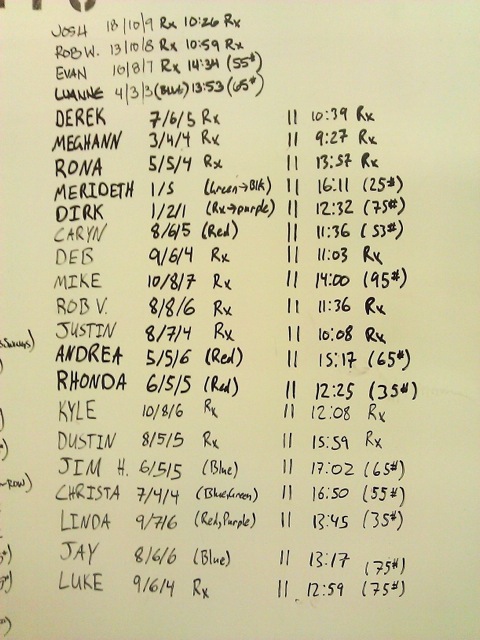 JOSH 18/10/9 Rx 10:26 Rx
ROB W. 13/10/8 Rx 10:59 Rx
EVAN 10/8/7 Rx 14:34 (55#)
LUANNE 4/3/3 (Blue) 13:53 (65#)
DEREK 7/6/5 Rx || 10:39 Rx
MEGHANN 3/4/4 Rx || 9:27 Rx
RONA 5/5/4 Rx || 13:57 Rx
MERIDETH 1/5 (Green→Blk) || 16:11 (25#)
DIRK 1/2/1 (Rx→purple) || 12:32 (75#)
CARYN 8/6/5 (Red) || 11:36 (53#)
DEB 9/6/4 Rx || 11:03 Rx
MIKE 10/8/7 Rx || 14:00 (95#)
ROB V. 8/8/6 Rx || 11:36 Rx
JUSTIN 8/7/4 Rx || 10:08 Rx
ANDREA 5/5/6 (Red) || 15:17 (65#)
RHONDA 6/5/5 (Red) || 12:25 (35#)
KYLE 10/8/6 Rx || 12:08 Rx
DUSTIN 8/5/5 Rx || 15:59 Rx
JIM H. 6/5/5 (Blue) || 17:02 (65#)
CHRISTA 7/4/4 (Blue,Green) || 16:50 (55#)
LINDA 9/7/6 (Red,Purple) || 13:45 (35#)
JAY 8/6/6 (Blue) || 13:17 (75#)
LUKE 9/6/4 Rx || 12:59 (75#)